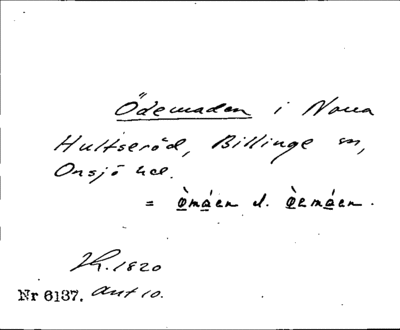 Ödemaden i Norra
Hultseröd, Billinge sn,
Onsjö hd.
= òmáen l. òemáen.
1820
Nr 6137. ant 10.